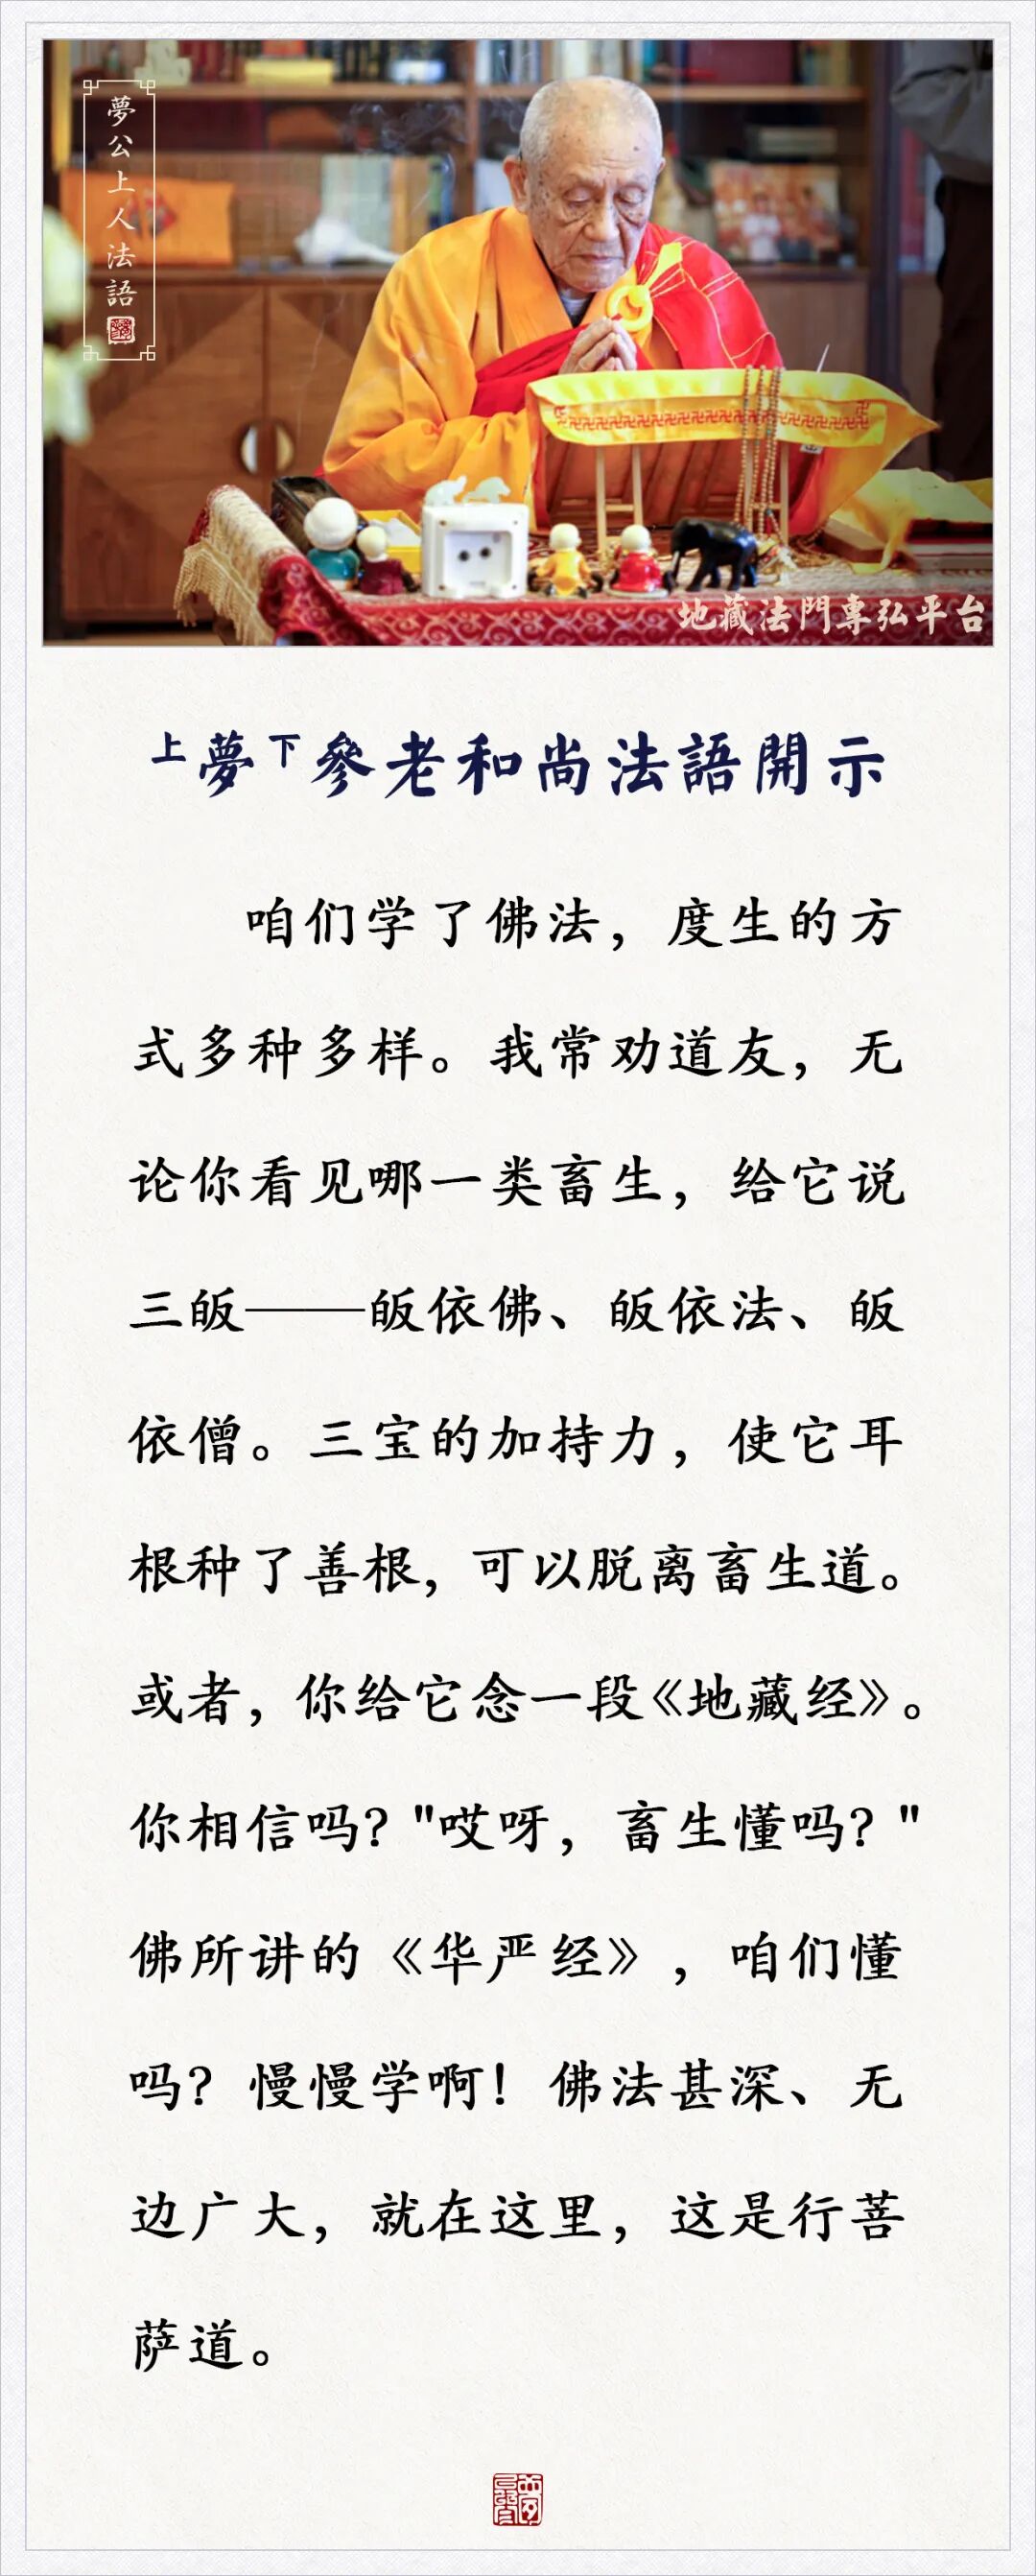 夢公上人法語
地藏法門專弘平台
上夢下參老和尚法語開示
咱们学了佛法，度生的方
式多种多样。我常劝道友，无
论你看见哪一类畜生，给它说
三皈——皈依佛、皈依法、皈
依僧。三宝的加持力，使它耳
根种了善根，可以脱离畜生道。
或者，你给它念一段《地藏经》。
你相信吗？"哎呀，畜生懂吗？"
佛所讲的《华严经》，咱们懂
吗？慢慢学啊！佛法甚深、无
边广大，就在这里，这是行菩
萨道。